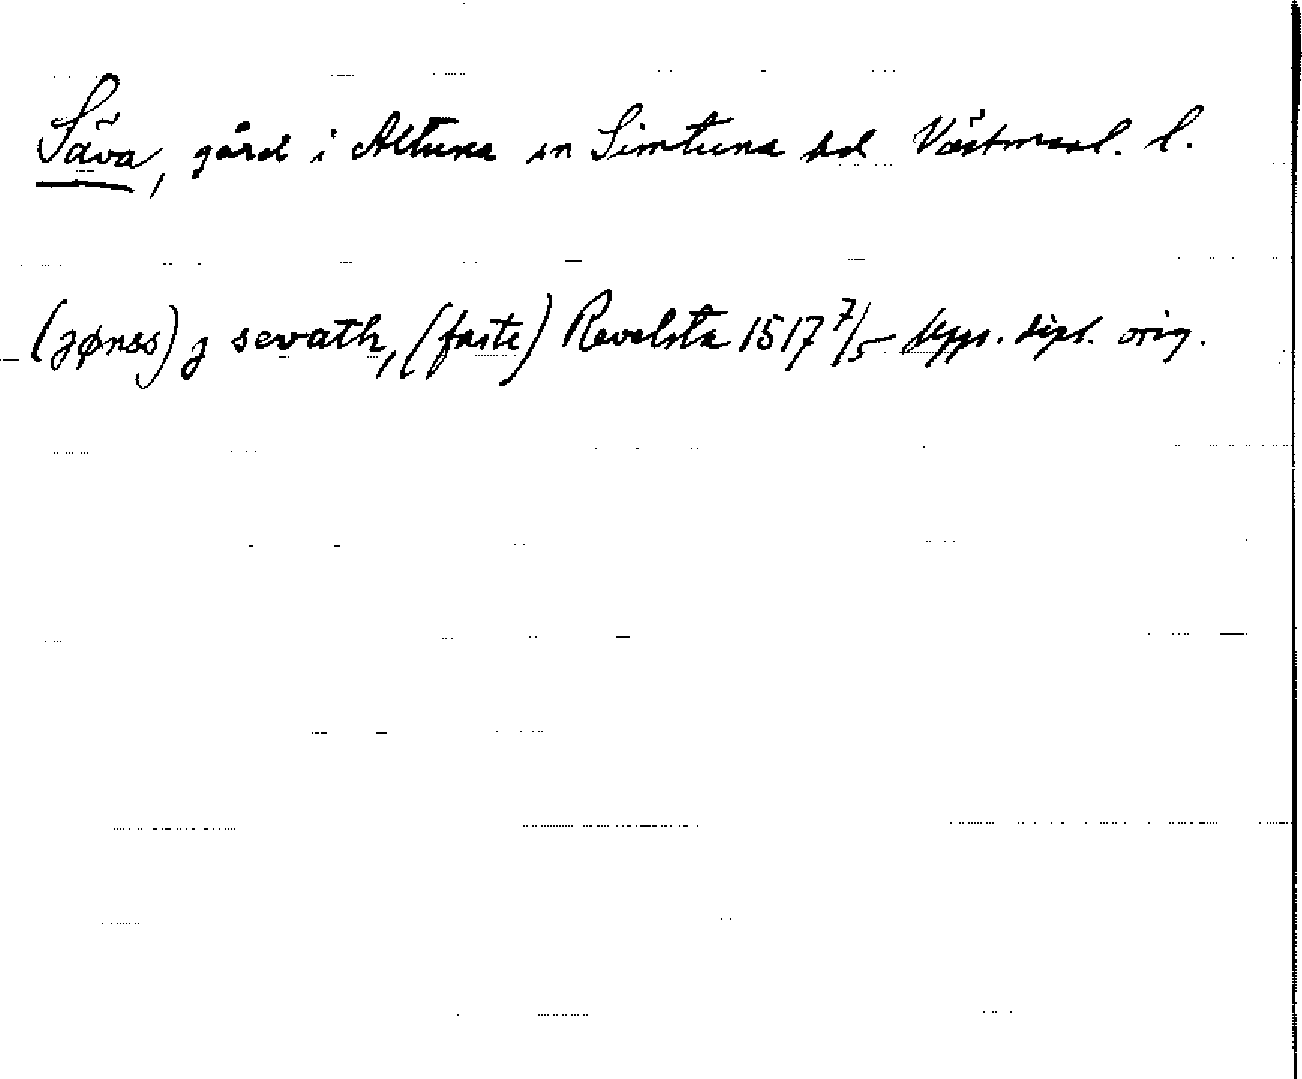 Säva, gård i Altuna sn Simtuna hd Västmanl. l.
(jønss) j sevath, (faste) Revelsta 1517 7/5 Upps. dipl. orig.